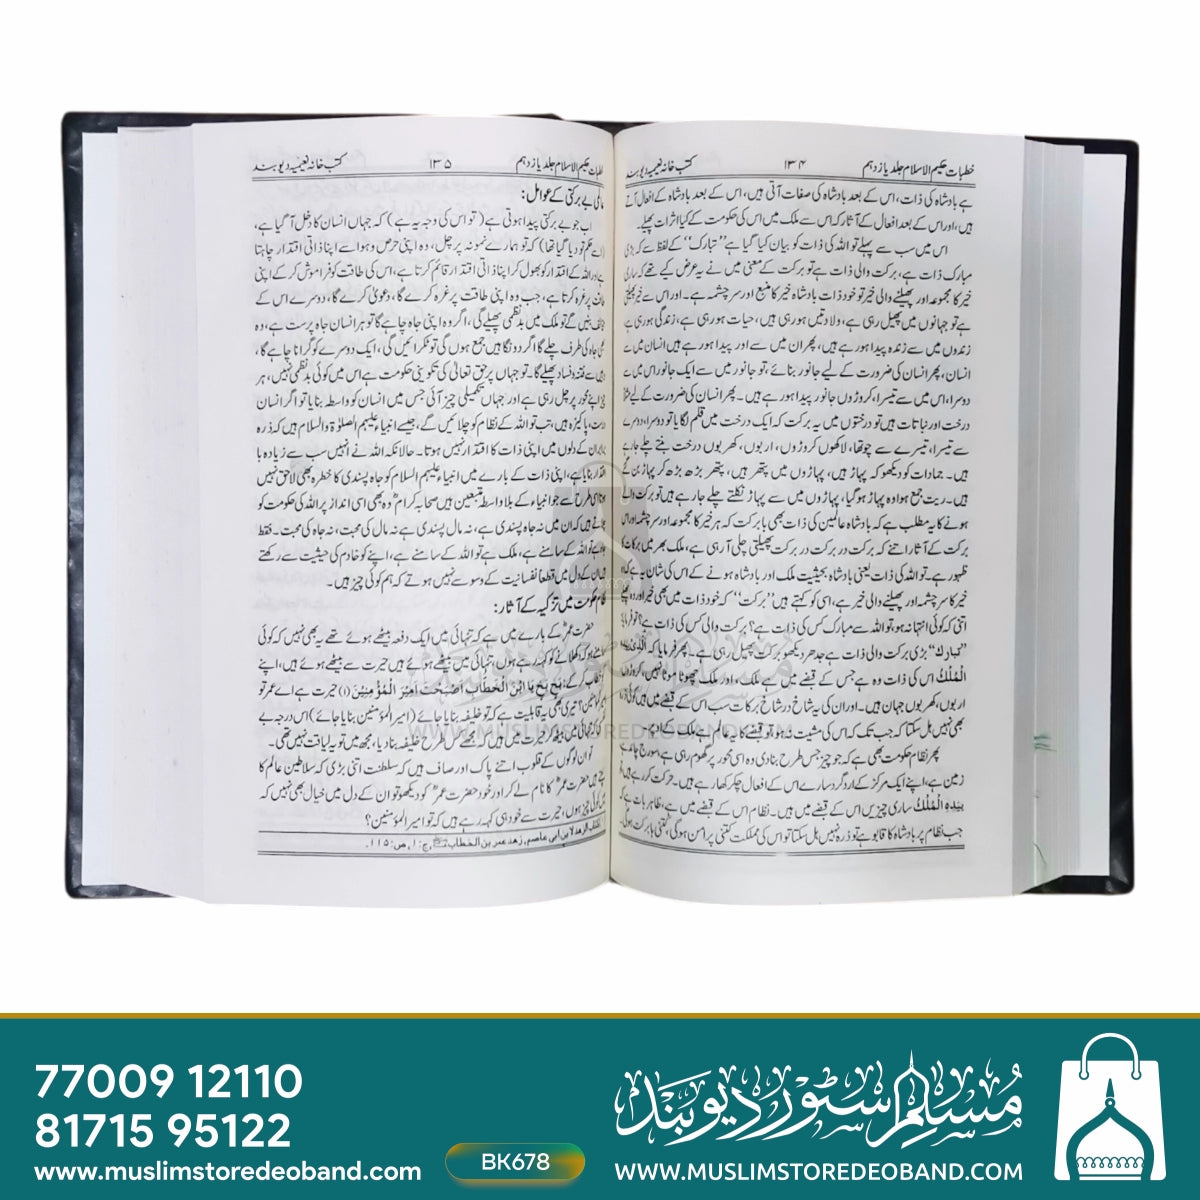 خطبات حکیم الاسلام جلد یازدہم ۱۳۴ کتب خانہ نعیمیہ دیوبند
ہے بادشاہ کی ذات، اس کے بعد بادشاہ کی صفات آتی ہیں، اس کے بعد بادشاہ کے افعال آتے
ہیں، اور اس کے بعد افعال کے آثار کہ اس سے ملک میں اس کی حکومت کے کیا اثرات پھیلے۔
اس میں سب سے پہلے تو اللہ کی ذات کو بیان کیا گیا ہے ”تبارک“ کے لفظ سے کہ بڑی
مبارک ذات ہے، برکت والی ذات ہے تو برکت کے معنی میں نے یہ عرض کیے تھے کہ ساری
خیر کا مجموعہ اور پھیلنے والی خیر تو خود ذات بادشاہ خیر کا منبع اور سرچشمہ ہے۔ اور اس سے خیر پھیلتی
ہے تو جہانوں میں پھیل رہی ہے، ولادتیں ہو رہی ہیں، حیات ہو رہی ہے، زندگی ہو رہی ہے
زندوں میں سے زندہ پیدا ہو رہے ہیں، پھر ان میں سے اور پیدا ہو رہے ہیں انسان میں سے
انسان، پھر انسان کی ضرورت کے لیے جانور بنائے، تو جانور میں سے ایک جانور اس میں سے
دوسرا، اس میں سے تیسرا، کروڑوں جانور پیدا ہو رہے ہیں۔ پھر انسان کی ضرورت کے لیے
درخت اور نباتات ہیں تو درختوں میں یہ برکت کہ ایک درخت میں قلم لگایا تو دوسرا، دوسرے
سے تیسرا، تیسرے سے چوتھا، لاکھوں کروڑوں، اربوں، کھربوں درخت بنتے چلے جا رہے
ہیں۔ جمادات کو دیکھو کہ پہاڑ ہیں، پہاڑوں میں پتھر ہیں، پتھر بڑھ بڑھ کر پہاڑ بن گئے
ہیں۔ ریت جمع ہوا وہ پہاڑ ہو گیا، پہاڑوں میں سے پہاڑ نکلتے چلے جا رہے ہیں تو برکت والے
ہونے کا یہ مطلب ہے کہ بادشاہ عالمین کی ذات بھی با برکت کہ ہر خیر کا مجموعہ اور سرچشمہ اور اس
برکت کے آثار اتنے کہ برکت در برکت در برکت پھیلتی چلی آ رہی ہے، ملک بھر میں برکات کا
ظہور ہے۔ تو اللہ کی ذات یعنی بادشاہ بحیثیت ملک اور بادشاہ ہونے کے اس کی شان یہ ہے کہ
خیر کا سرچشمہ اور پھیلنے والی خیر ہے، اسی کو کہتے ہیں ”برکت“ کہ خود ذات میں بھی خیر اور وہ پھیلے
اتنی کہ کوئی انتہا نہ ہو، تو اللہ سے مبارک کس کی ذات ہے؟ برکت والی کس کی ذات ہے؟ تو فرمایا
”تبارک“ بڑی برکت والی ذات ہے جدھر دیکھو برکت پھیل رہی ہے۔ پھر فرمایا کہ الَّذِیْ بِیَدِہِ
الْمُلْكُ اس کی ذات وہ ہے جس کے قبضے میں ہے ملک، اور ملک چھوٹا موٹا نہیں، کروڑوں
اربوں، کھربوں جہان ہیں۔ اور ان کی یہ شاخ در شاخ برکات سب اس کے قبضے میں ہیں کوئی ذرہ
بھی نہیں ہل سکتا کہ جب تک کہ اس کی مشیت نہ ہو، تو قبضے کا یہ عالم ہے ملک کے اوپر۔
پھر نظام حکومت بھی ہے کہ جو چیز جس طرح بنا دی وہ اسی محور پر گھوم رہی ہے، سورج چاند ہے
زمین ہے، اپنے ایک مرکز کے ارد گرد سارے اس کے افعال چکر کھا رہے ہیں۔ حرکت کر رہے ہیں
بِیَدِہِ الْمُلْكُ ساری چیزیں اس کے قبضے میں ہیں۔ نظام اس کے قبضے میں ہے، ظاہر بات ہے کہ
جب نظام پر بادشاہ کا قابو ہے تو ذرہ نہیں ہل سکتا تو اس کی مملکت کتنی پر امن ہوگی، کتنی با برکت ہوگی۔
خطبات حکیم الاسلام جلد یازدہم ۱۳۵ کتب خانہ نعیمیہ دیوبند
بے برکتی کے عوامل:
اب جو بے برکتی پیدا ہوتی ہے (تو اس کی وجہ یہ ہے) کہ جہاں انسان کا دخل آ گیا ہے،
حکم تو دیا گیا تھا) کہ تو ہمارے نمونہ پر چل، وہ اپنی حرص و ہوا سے اپنا ذاتی اقتدار چاہتا
ہے اور اللہ کے اقتدار کو بھول کر اپنا ذاتی اقتدار قائم کرتا ہے، اس کی طاقت کو فراموش کر کے اپنی
طاقت پر غرہ کرتا ہے، جب وہ اپنی طاقت پر غرہ کرے گا، دعویٰ کرے گا، دوسرے اس کے
بنیں گے تو ملک میں بدنظمی پھیلے گی، اگر وہ اپنی جاہ چاہے گا تو ہر انسان جاہ پرست ہے، وہ
بھی جاہ کی طرف چلے گا اگر دو نگاہیں جمع ہوں گی تو ٹکرائیں گی، ایک دوسرے کو گرانا چاہے گا،
سے فتنہ و فساد پھیلے گا۔ تو جہاں پر حق تعالیٰ کی تکوینی حکومت ہے اس میں کوئی بدنظمی نہیں، ہر
اپنے محور پر چل رہی ہے اور جہاں تکمیلی چیز آئی جس میں انسان کو واسطہ بنایا تو اگر انسان
پاکیزہ ہیں، تب تو اللہ کے نظام کو چلائیں گے، جیسے انبیاء علیہم الصلوٰۃ والسلام ہیں کہ ذرہ
برابر ان کے دلوں میں اپنی ذات کا اقتدار نہیں ہوتا۔ حالانکہ اللہ نے انہیں سب سے زیادہ با
اقتدار بنایا ہے، اپنی ذات کے بارے میں انبیاء علیہم السلام کو جاہ پسندی کا خطرہ بھی لاحق نہیں
ہوتا اسی طرح سے جو انبیاء کے بلا واسطہ متبعین ہیں صحابہ کرامؓ وہ بھی اسی انداز پر اللہ کی حکومت کو
کہ ان میں نہ جاہ پسندی ہے، نہ مال پسندی ہے نہ مال کی محبت، نہ جاہ کی محبت۔ فقط
اللہ کے سامنے ہے، ملک ہے تو اللہ کے سامنے ہے، اپنے کو خادم کی حیثیت سے رکھتے
ہیں ان کے دل میں قطعاً نفسانیت کے وسوسے نہیں ہوتے کہ ہم کوئی چیز ہیں۔
نظام حکومت میں تزکیہ کے آثار:
حضرت عمرؓ کے بارے میں ہے کہ تنہائی میں ایک دفعہ بیٹھے ہوئے تھے یہ بھی نہیں کہ کوئی
کو کہہ رہے ہوں، تنہائی میں بیٹھے ہوئے ہیں حیرت سے بیٹھے ہوئے ہیں، اپنے
خطاب کر کے: بَخٍ بَخٍ یَا ابْنَ الْخَطَّابِ اَصْبَحْتَ اَمِیْرَ الْمُؤْمِنِیْنَ (۱) حیرت ہے اے عمر تو
تیری بھی یہ قابلیت ہے کہ تو خلیفہ بنایا جائے (امیر المؤمنین بنایا جائے) اس درجہ بے
بیٹھ کر حیرت میں ہیں کہ مجھے کس طرح خلیفہ بنا دیا، مجھ میں تو یہ لیاقت نہیں تھی۔
تو ان لوگوں کے قلوب اتنے پاک اور صاف ہیں کہ سلطنت اتنی بڑی کہ سلاطین عالم کا
ہیں حضرت عمرؓ کا نام لے کر اور خود حضرت عمرؓ کو دیکھو تو ان کے دل میں خیال بھی نہیں کہ
کوئی چیز ہوں، حیرت سے خود ہی کہہ رہے ہیں کہ تو امیر المؤمنین؟
کتاب الزهد لابن ابی عاصم، زهد عمر بن الخطاب، ج: ۱، ص: ۱۱۵۔
WWW.MUSLIMSTOREDEOBAND.COM
77009 12110
81715 95122
www.muslimstoredeoband.com
BK678
مسلم سٹور دیوبند
WWW.MUSLIMSTOREDEOBAND.COM